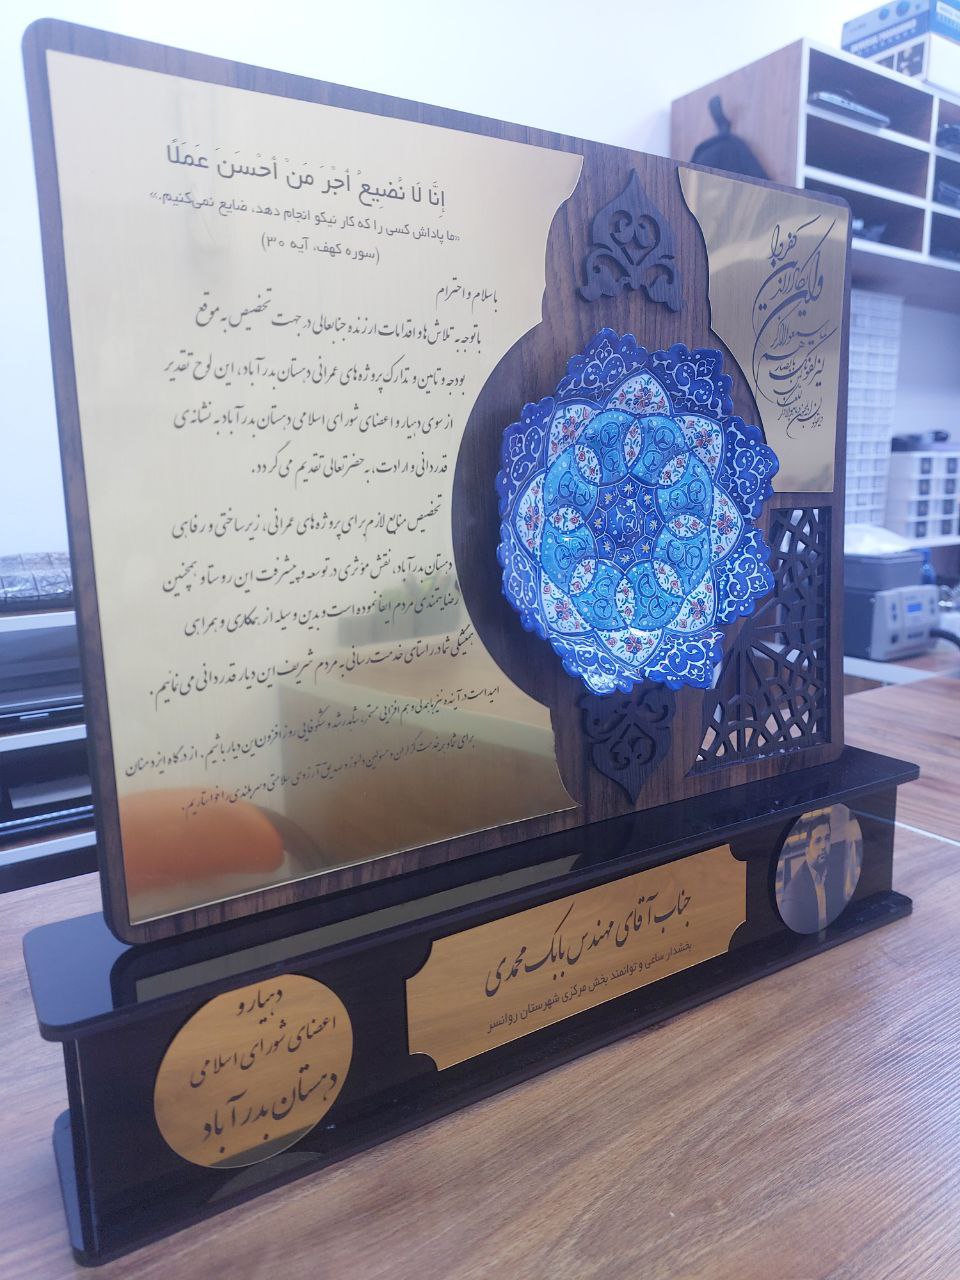 إِنَّا لَا نُضِيعُ أَجْرَ مَنْ أَحْسَنَ عَمَلًا
«ما پاداش کسی را که کار نیکو انجام دهد، ضایع نمی‌کنیم.»
(سوره کهف، آیه ۳۰)
با سلام و احترام
با توجه به تلاش‌ها و اقدامات ارزنده جنابعالی در جهت تخصیص به موقع
بودجه و تامین و تدارک پروژه‌های عمرانی دهستان بدرآباد، این لوح تقدیر
از سوی دهیار و اعضای شورای اسلامی دهستان بدرآباد به نشانه‌ی
قدردانی و ارادت، به حضرتعالی تقدیم می‌گردد.
تخصیص منابع لازم برای پروژه‌های عمرانی، زیرساختی و رفاهی
دهستان بدرآباد، نقش مؤثری در توسعه و پیشرفت این روستا و همچنین
رضایتمندی مردم ایفا نموده است و بدین وسیله از همکاری و همراهی
همیشگی شما در راستای خدمت رسانی به مردم شریف این دیار قدردانی می‌نمائیم.
امید است در آینده نیز با همدلی و هم افزایی مستمر، شاهد رشد و شکوفایی روز افزون این دیار باشیم. از درگاه ایزد منان
برای شما و بر خدمت گزاران و مسولین دلسوز و صدیق آرزوی سلامتی و سربلندی را خواستاریم.
جناب آقای مهندس بابک محمدی
بخشدار ساعی و توانمند بخش مرکزی شهرستان روانسر
دهیار و
اعضای شورای اسلامی
دهستان بدرآباد